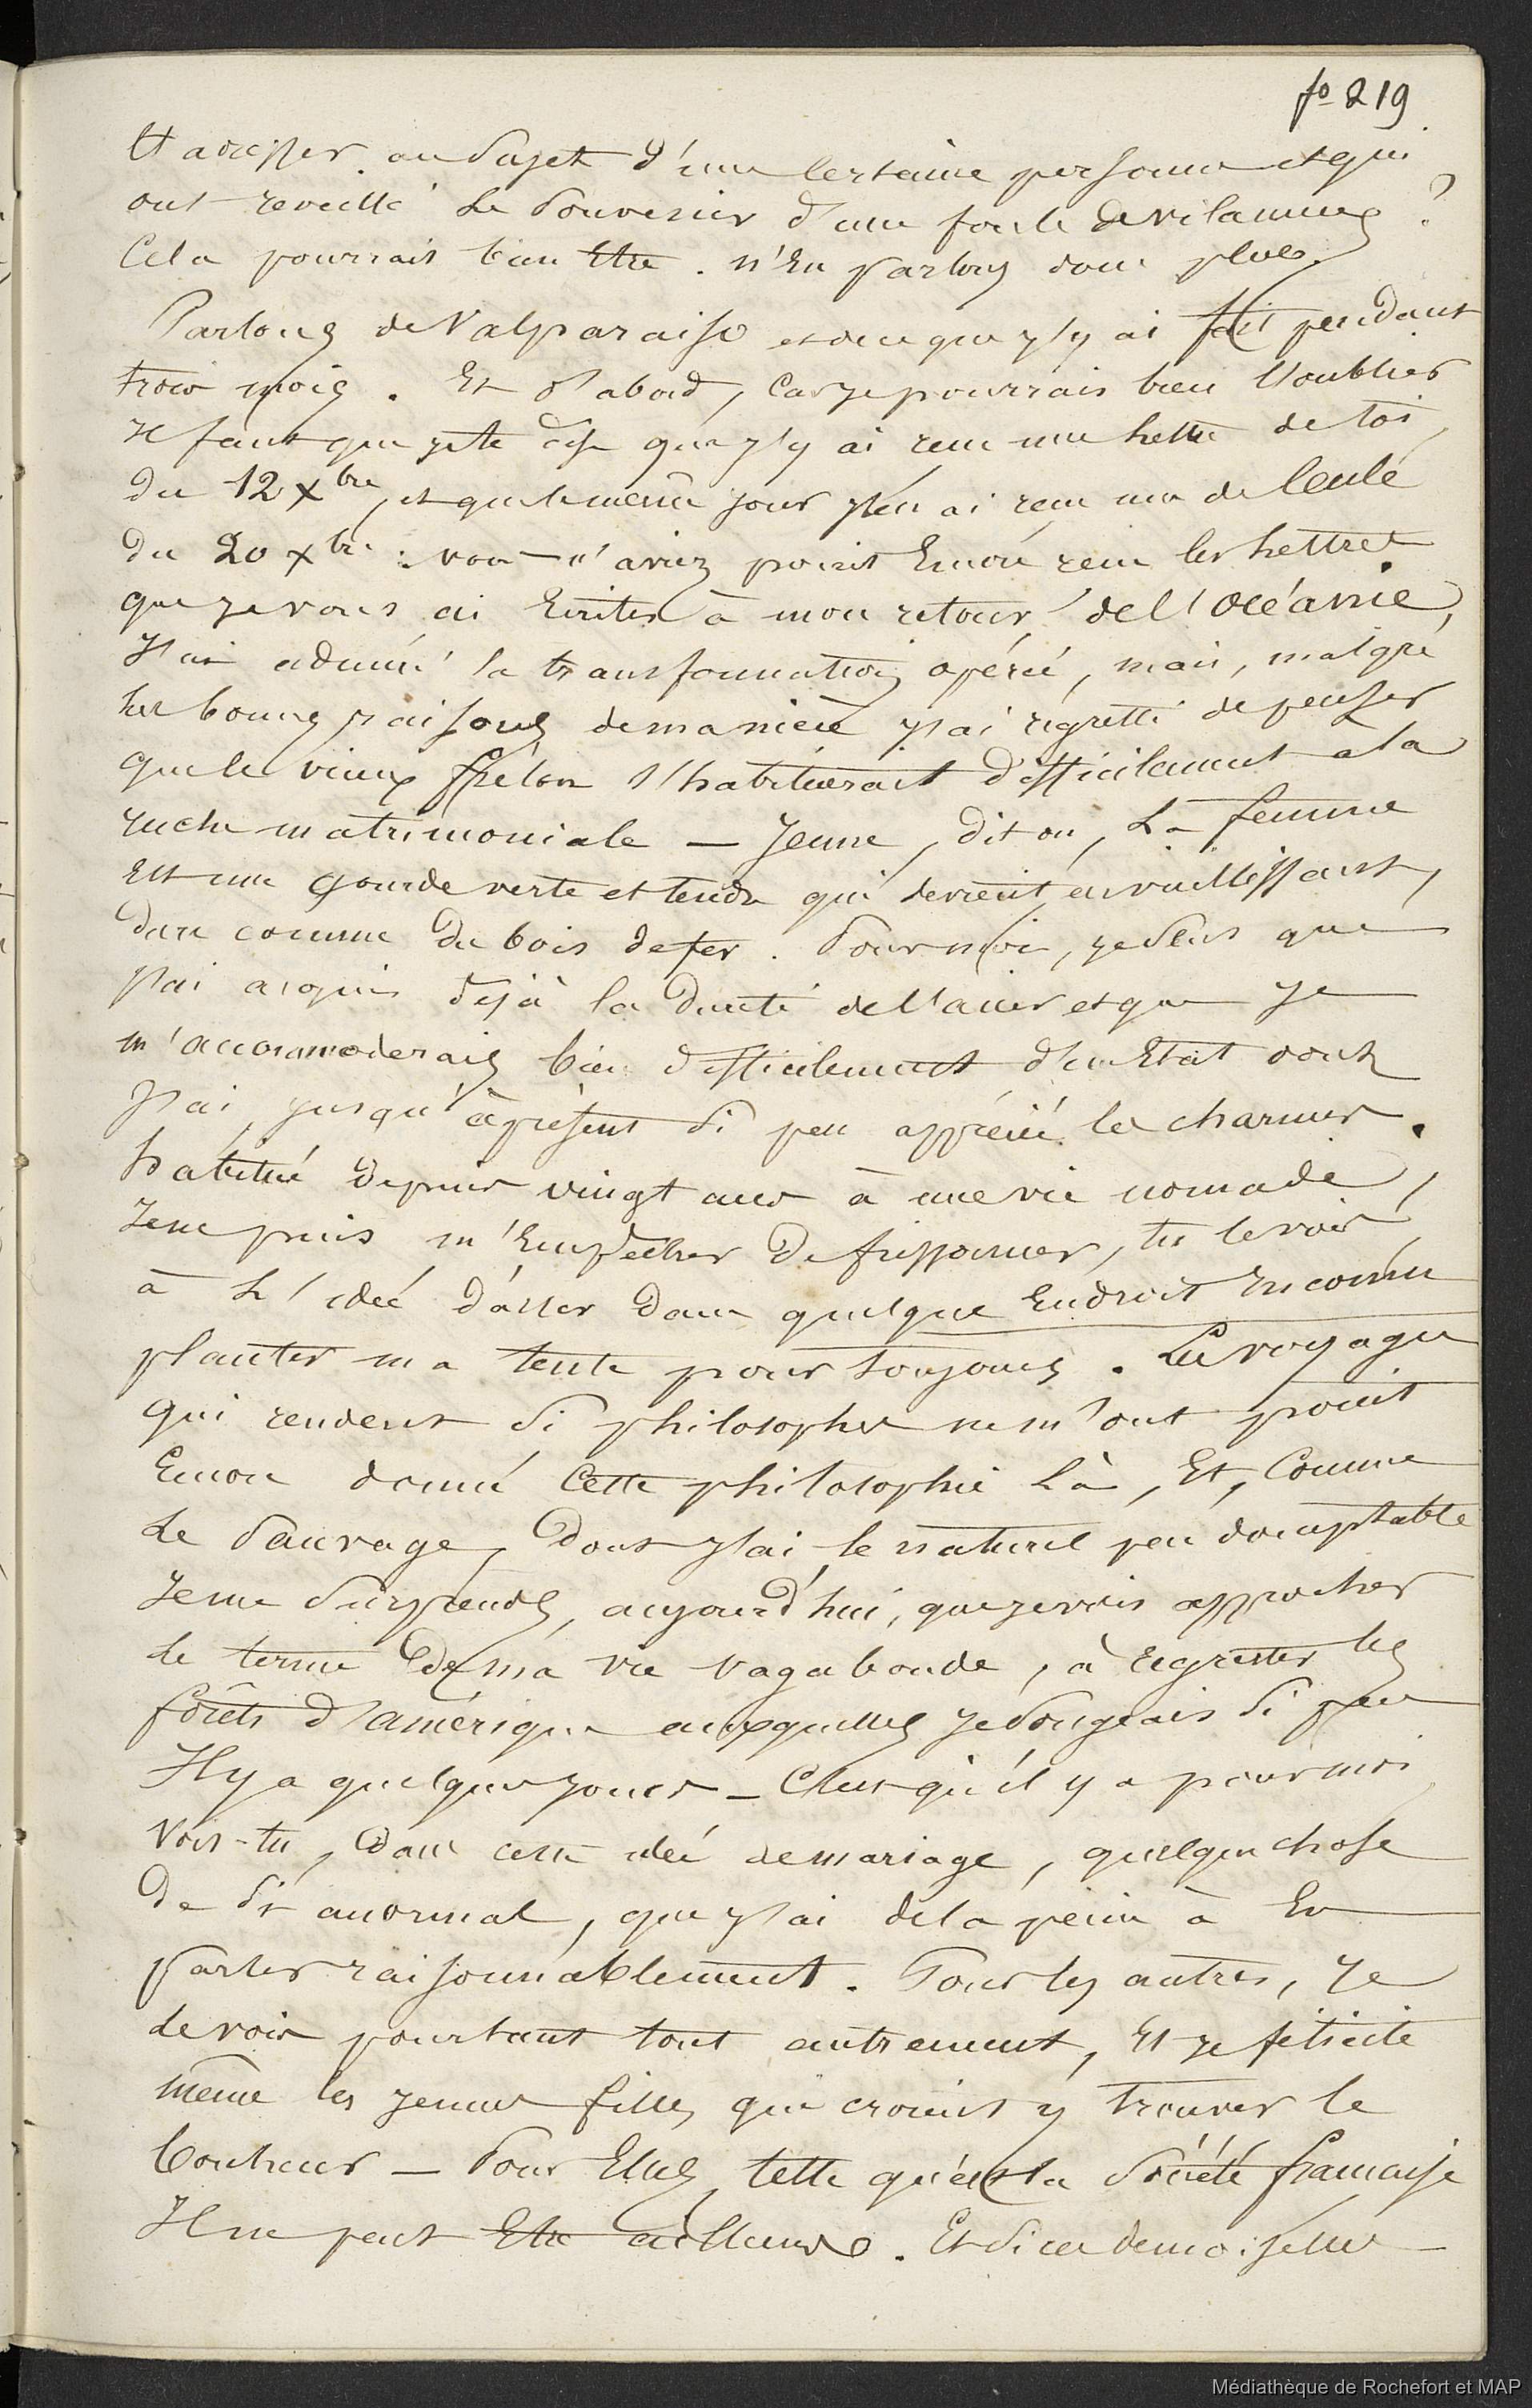 fo 219
t'adresser au sujet d'une certaine personne et qui
ont reveillé le souvenir d'une foule de vilainies ?
Cela pourrait bien Etre. N'En parlons donc plus.
Parlons de Valparaiso et de ce que j'y ai fait pendant
trois mois. Et d'abord, car je pourrais bien l'oublier
il faut que je te dise que j'y ai recu une lettre de toi,
du 12 Xbre, et que le même jour j'en ai recu une de
du 20 Xbre : vous n'aviez point Encore recu les lettres
que je vous ai Ecrites à mon retour de l'Océanie,
J'ai admiré la transformation opérée, mais, malgré
les bonnes raisons de ma nièce j'ai regretté de penser
que le vieux frélon s'habituerait difficilement a la
ruche matrimoniale — Jeune, dit on, La femme
est une gourde verte et tendre qui devient, en vieillissant,
dure comme du bois de fer. Pour moi, je sens que
j'ai acquis déjà la dureté de l'acier et que je
m'accommoderais bien difficilement d'un Etat dont
J'ai, jusqu'à présent si peu apprécié les charmes.
habitué depuis vingt ans à une vie nomade,
Je ne puis m'Empêcher de frissonner, tu le vois,
à L'idée d'aller dans quelque Endroit Inconnu
planter ma tente pour toujours. Les voyages
qui rendent si philosophe ne m'ont point
Encore donné Cette philosophie là, Et, Comme
Le Sauvage, dont j'ai le naturel peu domptable
Je me surprends, aujourd'hui, que je vois approcher
le terme de ma vie vagabonde, à regretter les
forêts d'amérique auxquelles je songeais si peu
Il y a quelques jours — C'est qu'il y a pour moi,
Vois-tu, dans cette idée de mariage, quelque chose
De si anormal, que j'ai de la peine à En
parler raisonnablement. Pour les autres, je
le vois pourtant tout autrement, Et je félicite
même les jeunes filles qui croient y trouver le
bonheur — Pour Elles, telle qu'est la Société française
Il ne peut Etre ailleurs. Et si ces demoiselles
Médiathèque de Rochefort et MAP